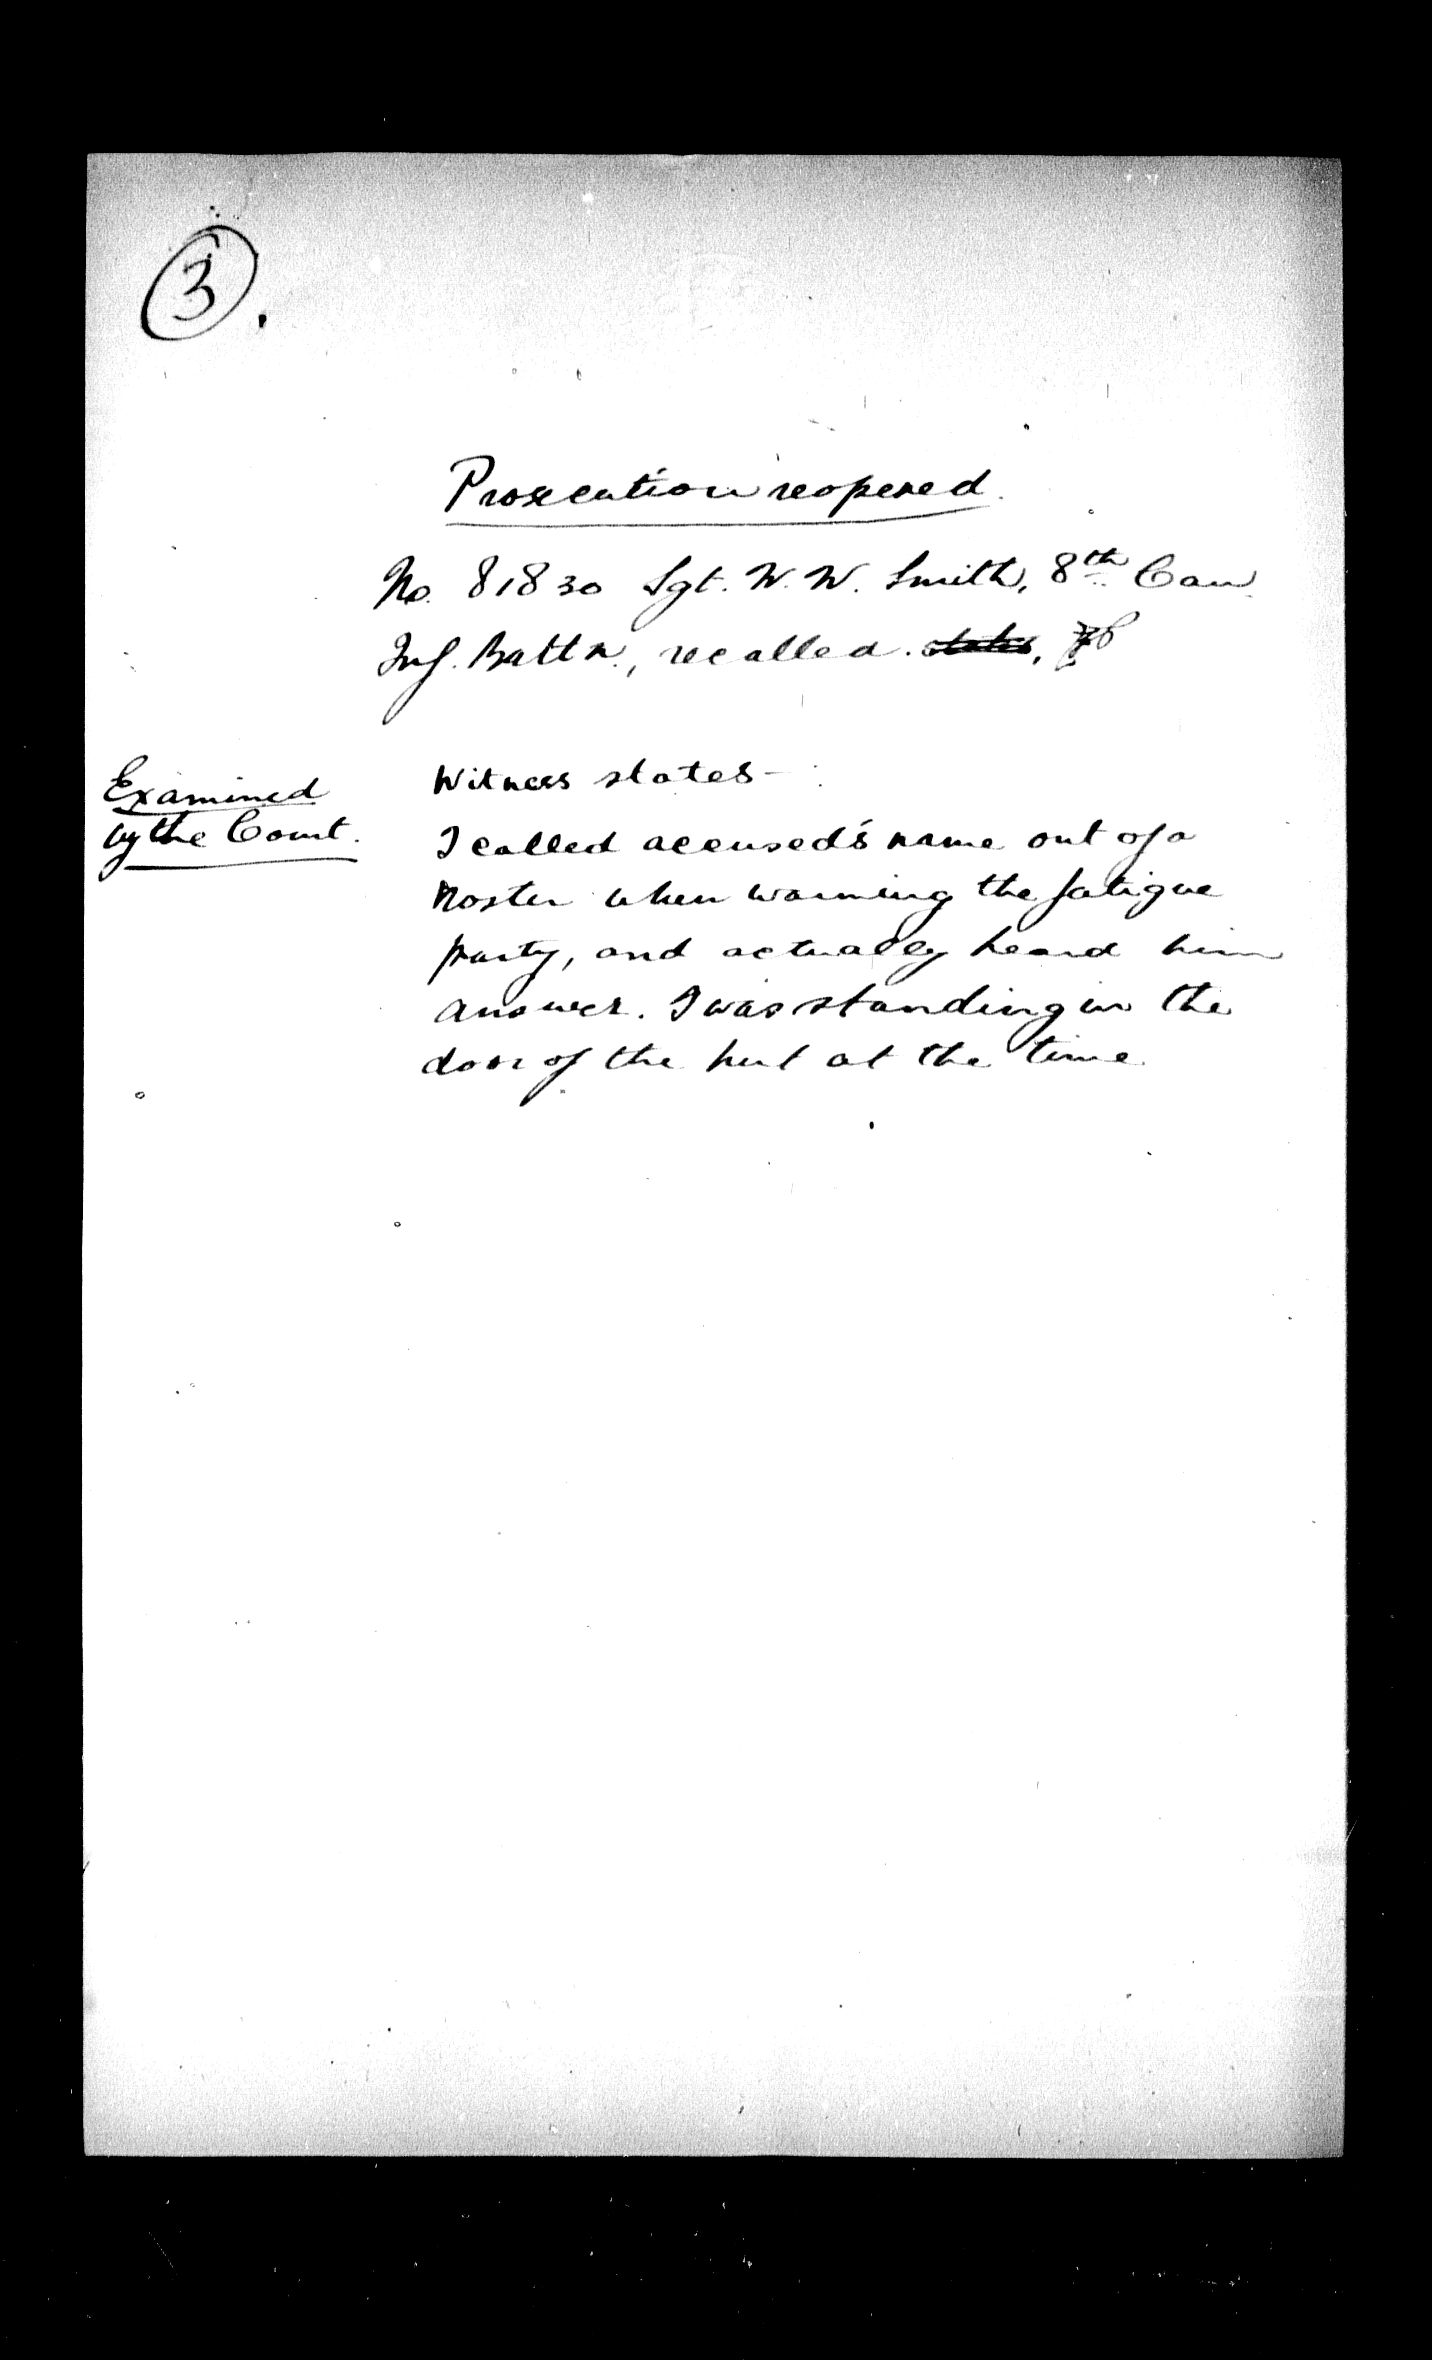 3.
Prosecution reopened.
No. 81830 Sgt. W. W. Smith, 8th Can.
Inf. Battn., recalled. states,
Examined
by the Court.
Witness states -
I called accused's name out of a
Roster when warning the fatigue
party, and actually heard him
answer. I was standing in the
door of the hut at the time.